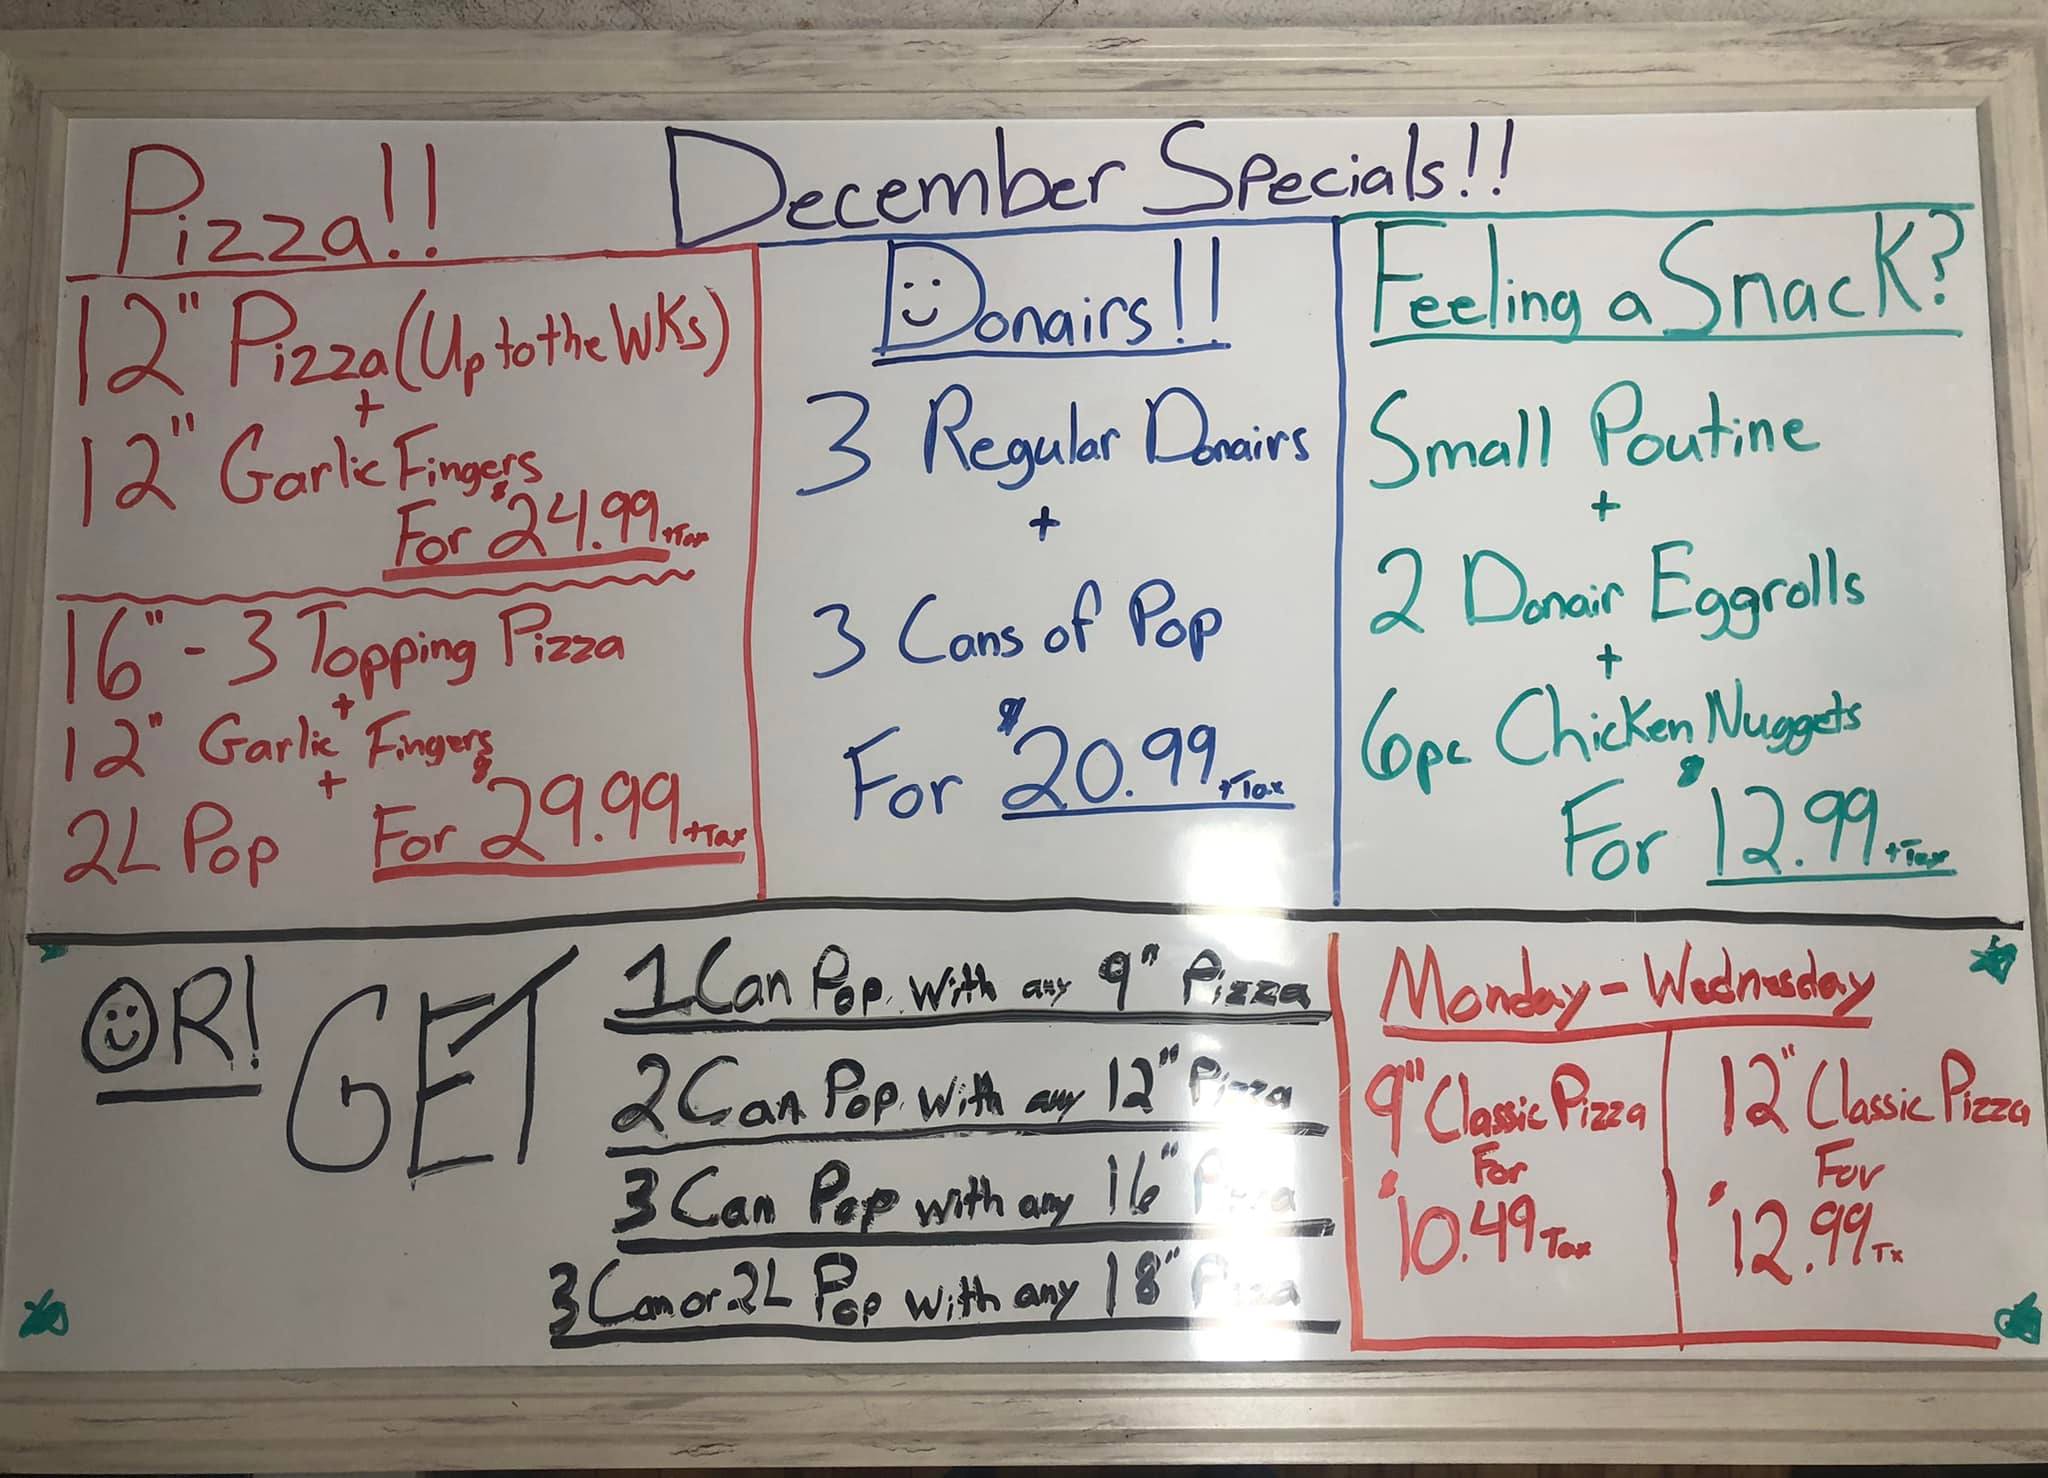 December Specials!!
Pizza!!
12" Pizza (Up to the WKs)
+
12" Garlic Fingers
For $24.99 +Tax
16" - 3 Topping Pizza
+
12" Garlic Fingers
+
2L Pop For $29.99 +Tax
Donairs!!
3 Regular Donairs
+
3 Cans of Pop
For $20.99 +Tax
Feeling a Snack?
Small Poutine
+
2 Donair Eggrolls
+
6pc Chicken Nuggets
For $12.99 +Tax
OR! GET
1 Can Pop with any 9" Pizza
2 Can Pop with any 12" Pizza
3 Can Pop with any 16" Pizza
3 Can or 2L Pop with any 18" Pizza
Monday - Wednesday
9" Classic Pizza
For
$10.49 Tax
12" Classic Pizza
For
$12.99 Tx